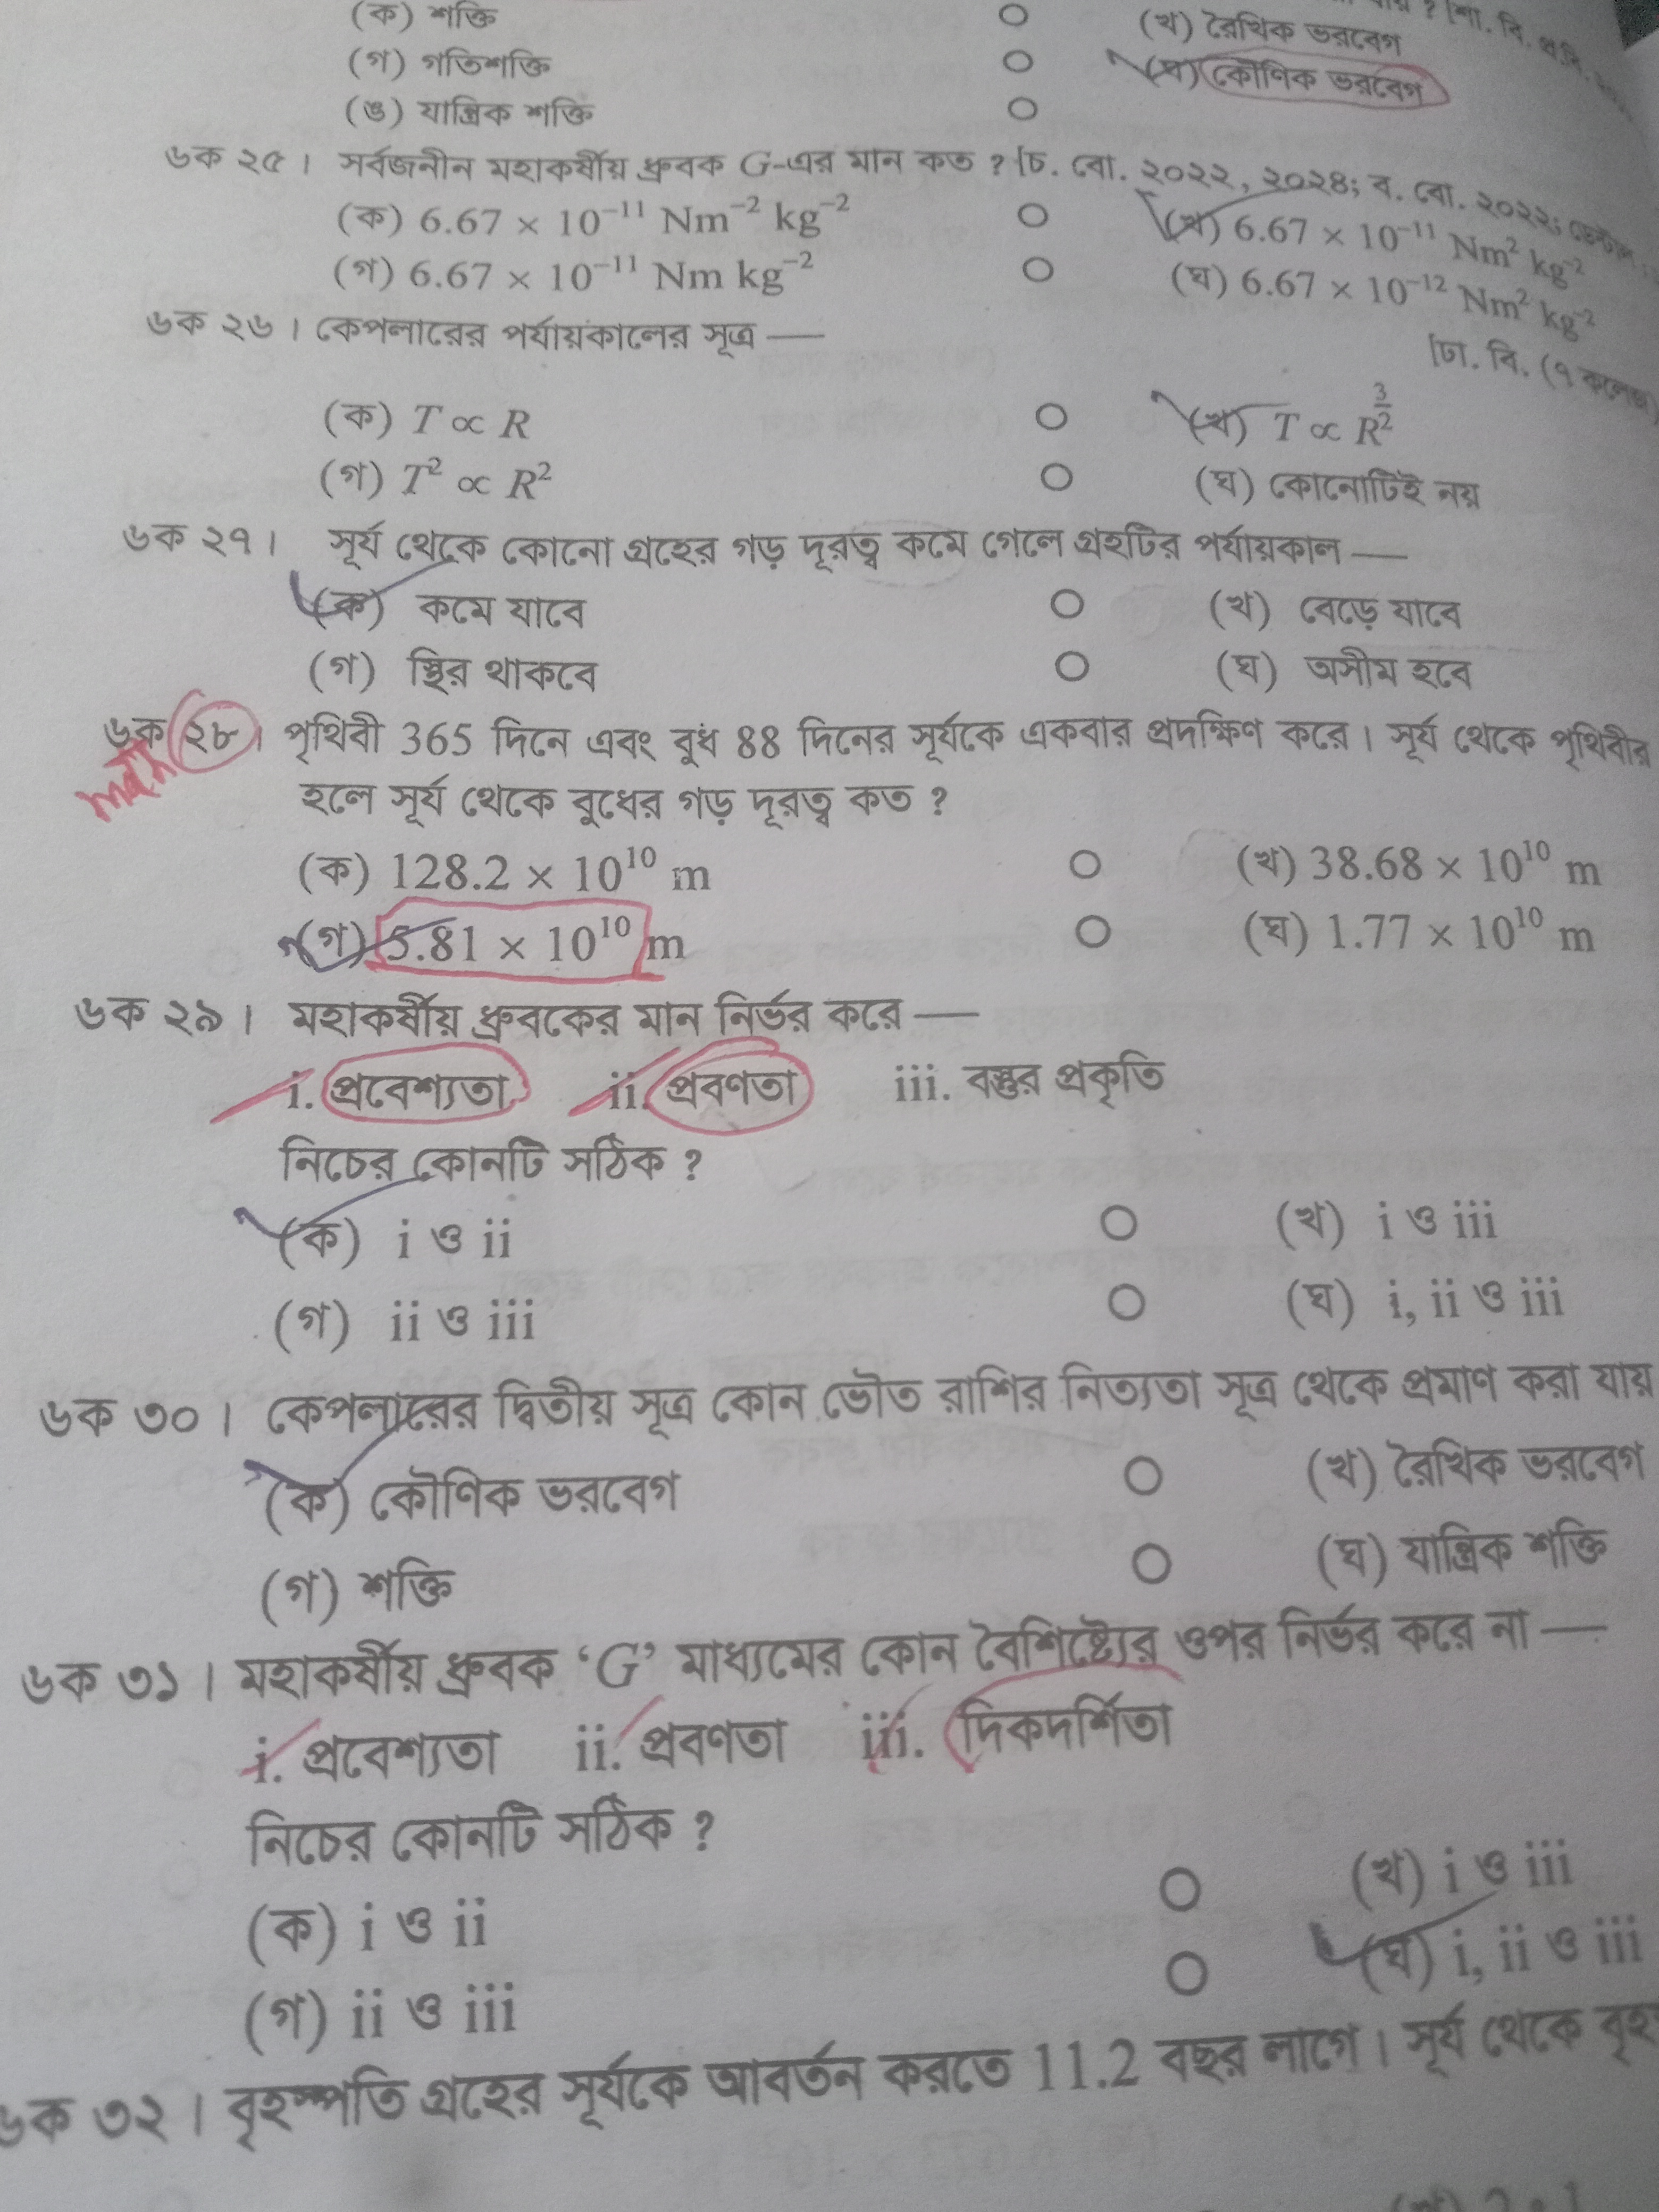 (ক) শক্তি ○ (খ) রৈখিক ভরবেগ
(গ) গতিশক্তি ○ (ঘ) কৌণিক ভরবেগ
(ঙ) যান্ত্রিক শক্তি ○
৬ক ২৫। সর্বজনীন মহাকর্ষীয় ধ্রুবক G-এর মান কত ? [চ. বো. ২০২২, ২০২৪; ব. বো. ২০২২;
(ক) 6.67 × 10⁻¹¹ Nm⁻² kg⁻² ○ (খ) 6.67 × 10⁻¹¹ Nm² kg⁻²
(গ) 6.67 × 10⁻¹¹ Nm kg⁻² ○ (ঘ) 6.67 × 10⁻¹² Nm² kg⁻²
৬ক ২৬। কেপলারের পর্যায়কালের সূত্র —
[ঢা. বি. (৭ কলেজ)
(ক) T ∝ R ○ (খ) T ∝ R^(3/2)
(গ) T² ∝ R² ○ (ঘ) কোনোটিই নয়
৬ক ২৭। সূর্য থেকে কোনো গ্রহের গড় দূরত্ব কমে গেলে গ্রহটির পর্যায়কাল —
(ক) কমে যাবে ○ (খ) বেড়ে যাবে
(গ) স্থির থাকবে ○ (ঘ) অসীম হবে
৬ক ২৮। পৃথিবী 365 দিনে এবং বুধ 88 দিনের সূর্যকে একবার প্রদক্ষিণ করে। সূর্য থেকে পৃথিবীর
হলে সূর্য থেকে বুধের গড় দূরত্ব কত ?
(ক) 128.2 × 10¹⁰ m ○ (খ) 38.68 × 10¹⁰ m
(গ) 5.81 × 10¹⁰ m ○ (ঘ) 1.77 × 10¹⁰ m
৬ক ২৯। মহাকর্ষীয় ধ্রুবকের মান নির্ভর করে —
i. প্রবেশ্যতা ii. প্রবণতা iii. বস্তুর প্রকৃতি
নিচের কোনটি সঠিক ?
(ক) i ও ii ○ (খ) i ও iii
(গ) ii ও iii ○ (ঘ) i, ii ও iii
৬ক ৩০। কেপলারের দ্বিতীয় সূত্র কোন ভৌত রাশির নিত্যতা সূত্র থেকে প্রমাণ করা যায়
(ক) কৌণিক ভরবেগ ○ (খ) রৈখিক ভরবেগ
(গ) শক্তি ○ (ঘ) যান্ত্রিক শক্তি
৬ক ৩১। মহাকর্ষীয় ধ্রুবক ‘G’ মাধ্যমের কোন বৈশিষ্ট্যের ওপর নির্ভর করে না —
i. প্রবেশ্যতা ii. প্রবণতা iii. দিকদর্শিতা
নিচের কোনটি সঠিক ?
(ক) i ও ii ○ (খ) i ও iii
(গ) ii ও iii ○ (ঘ) i, ii ও iii
৬ক ৩২। বৃহস্পতি গ্রহের সূর্যকে আবর্তন করতে 11.2 বছর লাগে। সূর্য থেকে